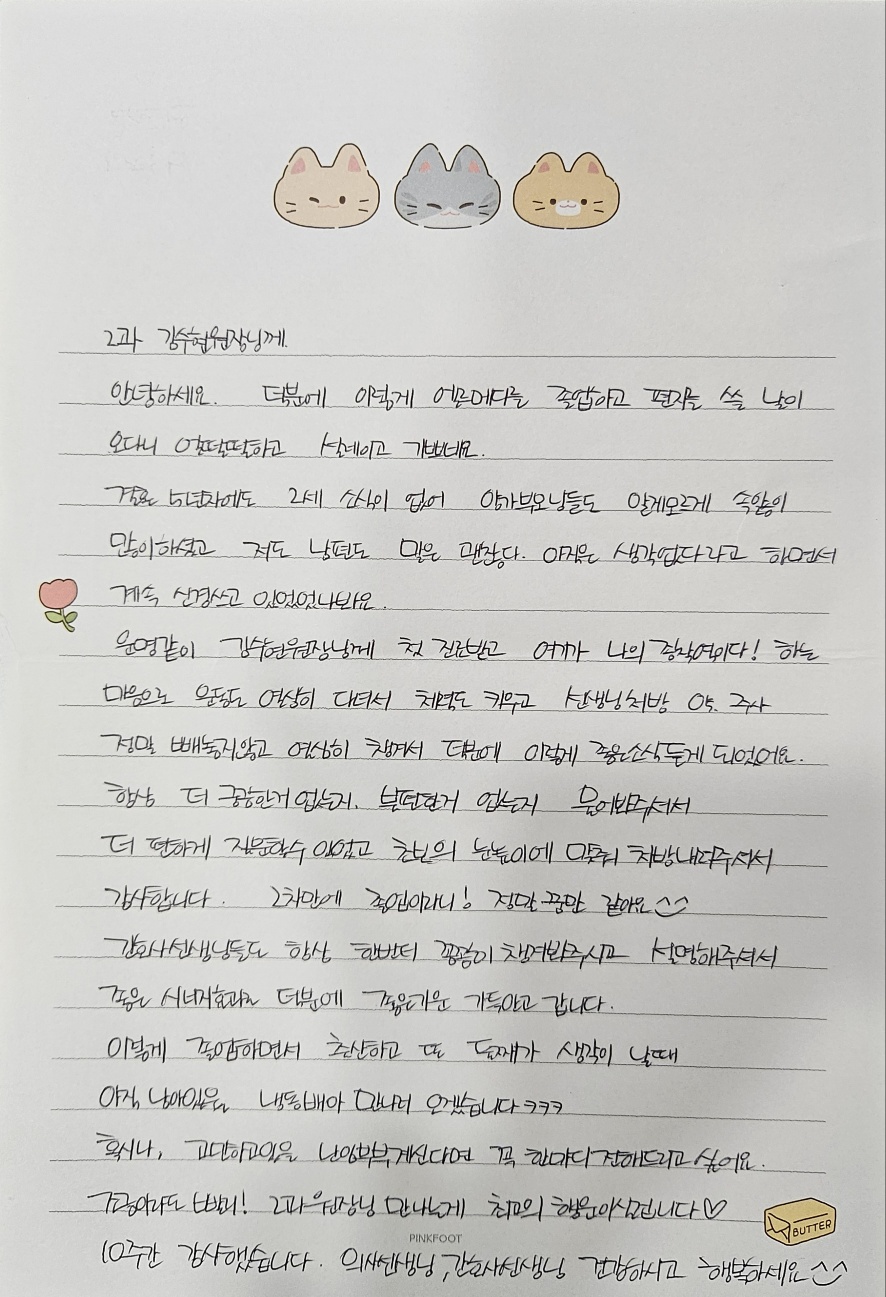 2과 김수현원장님께.
안녕하세요. 덕분에 이렇게 에른메디를 졸업하고 편지를 쓸 날이
오다니 얼떨떨하고 설레이고 기쁘네요.
결혼 5년차에도 2세 소식이 없어 양가부모님들도 알게모르게 속앓이
많이하셨고 저도 남편도 말은 괜찮다. 아직은 생각없다라고 하면서
계속 신경쓰고 있었었나봐요.
운명같이 김수현원장님께 첫 진료받고 여기가 나의 종착역이다! 하는
마음으로 운동도 열심히 다녀서 체력도 키우고 선생님처방 약. 주사
정말 빼놓지않고 열심히 챙겨서 덕분에 이렇게 좋은소식듣게 되었어요.
항상 더 궁금한거 없는지. 불편한거 없는지 물어봐주셔서
더 편하게 질문할수 있었고 초보의 눈높이에 맞춰 처방내려주셔서
감사합니다. 2차만에 졸업이라니! 정말 꿈만 같아요^^
간호사선생님들도 항상 한번더 꼼꼼히 챙겨봐주시고 설명해주셔서
좋은 시너지효과로 덕분에 좋은기운 가득안고 갑니다.
이렇게 졸업하면서 출산하고 또 둘째가 생각이 날때
아직 남아있는 냉동배아 만나러 오겠습니다ㅋㅋㅋ
혹시나, 고민하고있을 난임부부계신다면 꼭 한마디전해드리고싶어요.
하루라도 빨리! 2과원장님 만나는게 최고의 행운이실겁니다♡
10주간 감사했습니다. 의사선생님, 간호사선생님 건강하시고 행복하세요^^
PINKFOOT
BUTTER